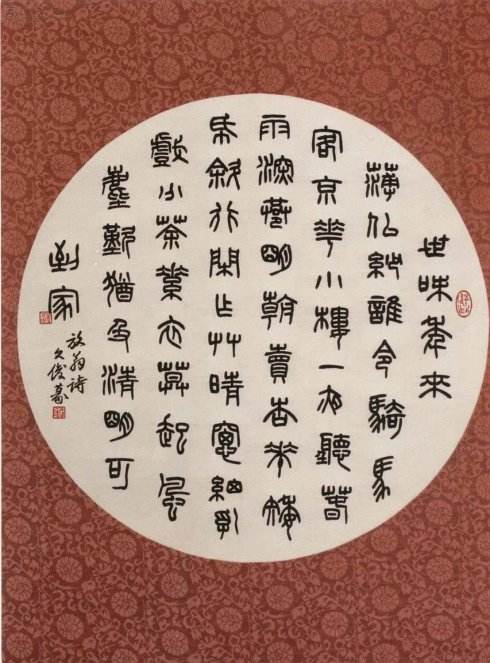 世味年來
薄似紗誰令騎馬
客京華小樓一夜聽春
雨深巷明朝賣杏花矮
紙斜行閒作草晴窗細乳
戲分茶素衣莫起風
塵歎猶及清明可
到家
放翁詩